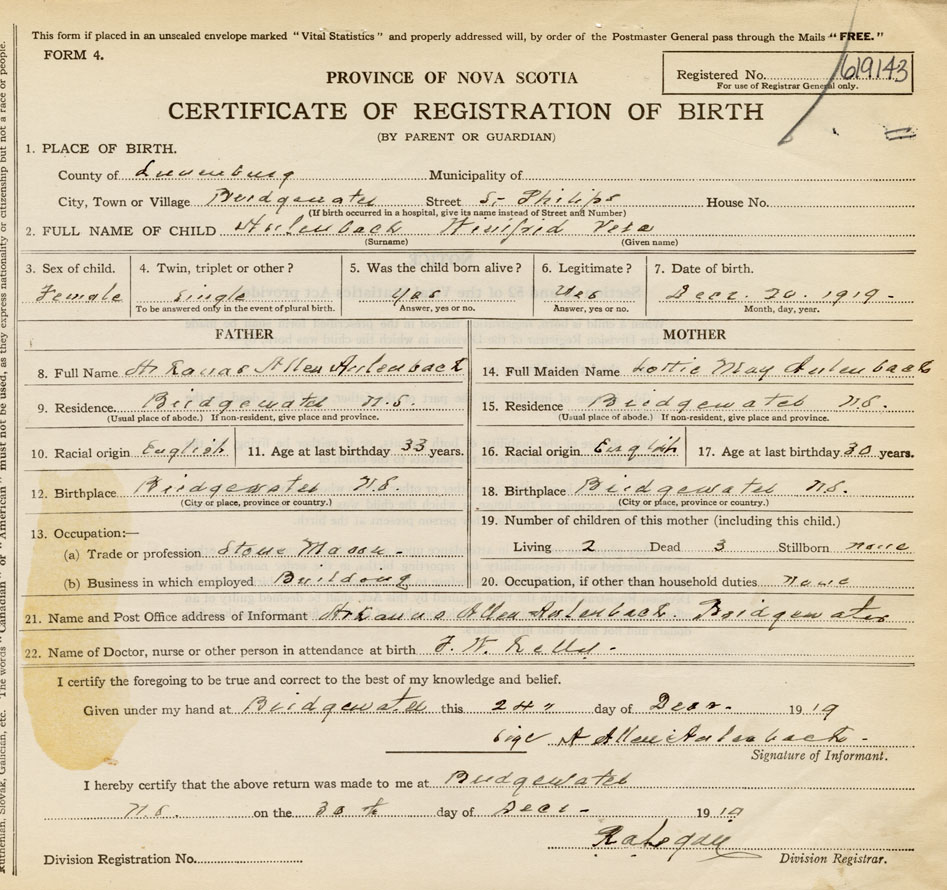 This form if placed in an unsealed envelope marked "Vital Statistics" and properly addressed will, by order of the Postmaster General pass through the Mails "FREE."
FORM 4.
PROVINCE OF NOVA SCOTIA
Registered No. 619143
For use of Registrar General only.
CERTIFICATE OF REGISTRATION OF BIRTH
(BY PARENT OR GUARDIAN)
1. PLACE OF BIRTH.
County of Lunenburg Municipality of
City, Town or Village Bridgewater Street St Philips House No.
(If birth occurred in a hospital, give its name instead of Street and Number)
2. FULL NAME OF CHILD Aulenback Winifrid Vera
(Surname) (Given name)
3. Sex of child. 4. Twin, triplet or other? 5. Was the child born alive? 6. Legitimate? 7. Date of birth.
Female Single Yes Yes Decr. 20. 1919-
To be answered only in the event of plural birth. Answer, yes or no. Answer, yes or no. Month, day, year.
FATHER MOTHER
8. Full Name Allen Aulenback 14. Full Maiden Name Lottie May Aulenback
9. Residence Bridgewater N.S. 15. Residence Bridgewater NS.
(Usual place of abode.) If non-resident, give place and province. (Usual place of abode.) If non-resident, give place and province.
10. Racial origin English 11. Age at last birthday 33 years. 16. Racial origin English 17. Age at last birthday 30 years.
12. Birthplace Bridgewater N.S. 18. Birthplace Bridgewater NS.
(City or place, province or country.) (City or place, province or country.)
13. Occupation:— 19. Number of children of this mother (including this child.)
(a) Trade or profession Stone Mason - Living 2 Dead 3 Stillborn none
(b) Business in which employed Building 20. Occupation, if other than household duties none
21. Name and Post Office address of Informant Allen Aulenback. Bridgewater
22. Name of Doctor, nurse or other person in attendance at birth F. W.
I certify the foregoing to be true and correct to the best of my knowledge and belief.
Given under my hand at Bridgewater this 24" day of Decr- 1919
sige A Allen Aulenback -
Signature of Informant.
I hereby certify that the above return was made to me at Bridgewater
N.S. on the 30th day of Decr - 1919
Division Registration No. Division Registrar.